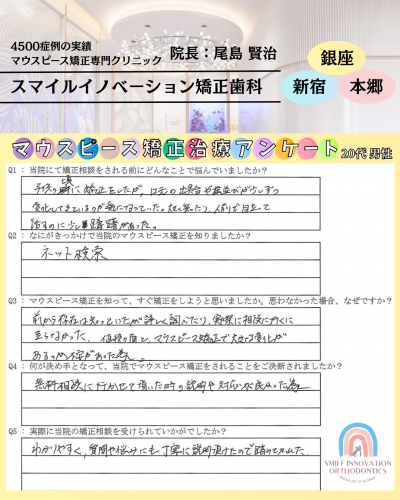 4500症例の実績
マウスピース矯正専門クリニック 院長：尾島 賢治
スマイルイノベーション矯正歯科
銀座
新宿 本郷
マウスピース矯正治療アンケート 20代 男性
Q1：当院にて矯正相談をされる前にどんなことで悩んでいましたか？
子供の頃に矯正をしたが、
変化してきているのが気になっていた。
治すのに少し躊躇があった。
Q2：なにがきっかけで当院のマウスピース矯正を知りましたか？
ネット検索
Q3：マウスピース矯正を知って、すぐ矯正をしようと思いましたか。思わなかった場合、なぜですか？
前から存在は知っていたが詳しく調べたり、実際に相談に行くに
至らなかった。価格の面と、マウスピース矯正で大きな変化が
あるのか不安があった為。
Q4：何が決め手となって、当院でマウスピース矯正をされることをご決断されましたか？
無料相談に行かせて頂いた時の説明や対応が良かった為
Q5：実際に当院の矯正相談を受けられていかがでしたか？
わかりやすく、質問や悩みにも丁寧に説明頂けたので
SMILE INNOVATION
ORTHODONTICS